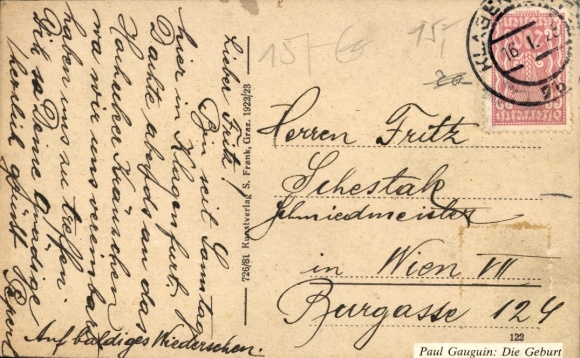 Lieber Fritz!
Bin seit Samstag
hier in Klagenfurt.
Dachte abends an das
wa wir uns vereinbar
haben uns zu treffen
Dich so Deine Gnädige
herzlich grüßt
Auf baldiges Wiedersehen.
726/81 Kunstverlag S. Frank, Graz. 1922/23
15,- €
15,-
KLAGEN
16. I. 23
Herren Fritz
Schestak
Schmiedmeister
in Wien VII
Burgasse 124
122
Paul Gauguin: Die Geburt